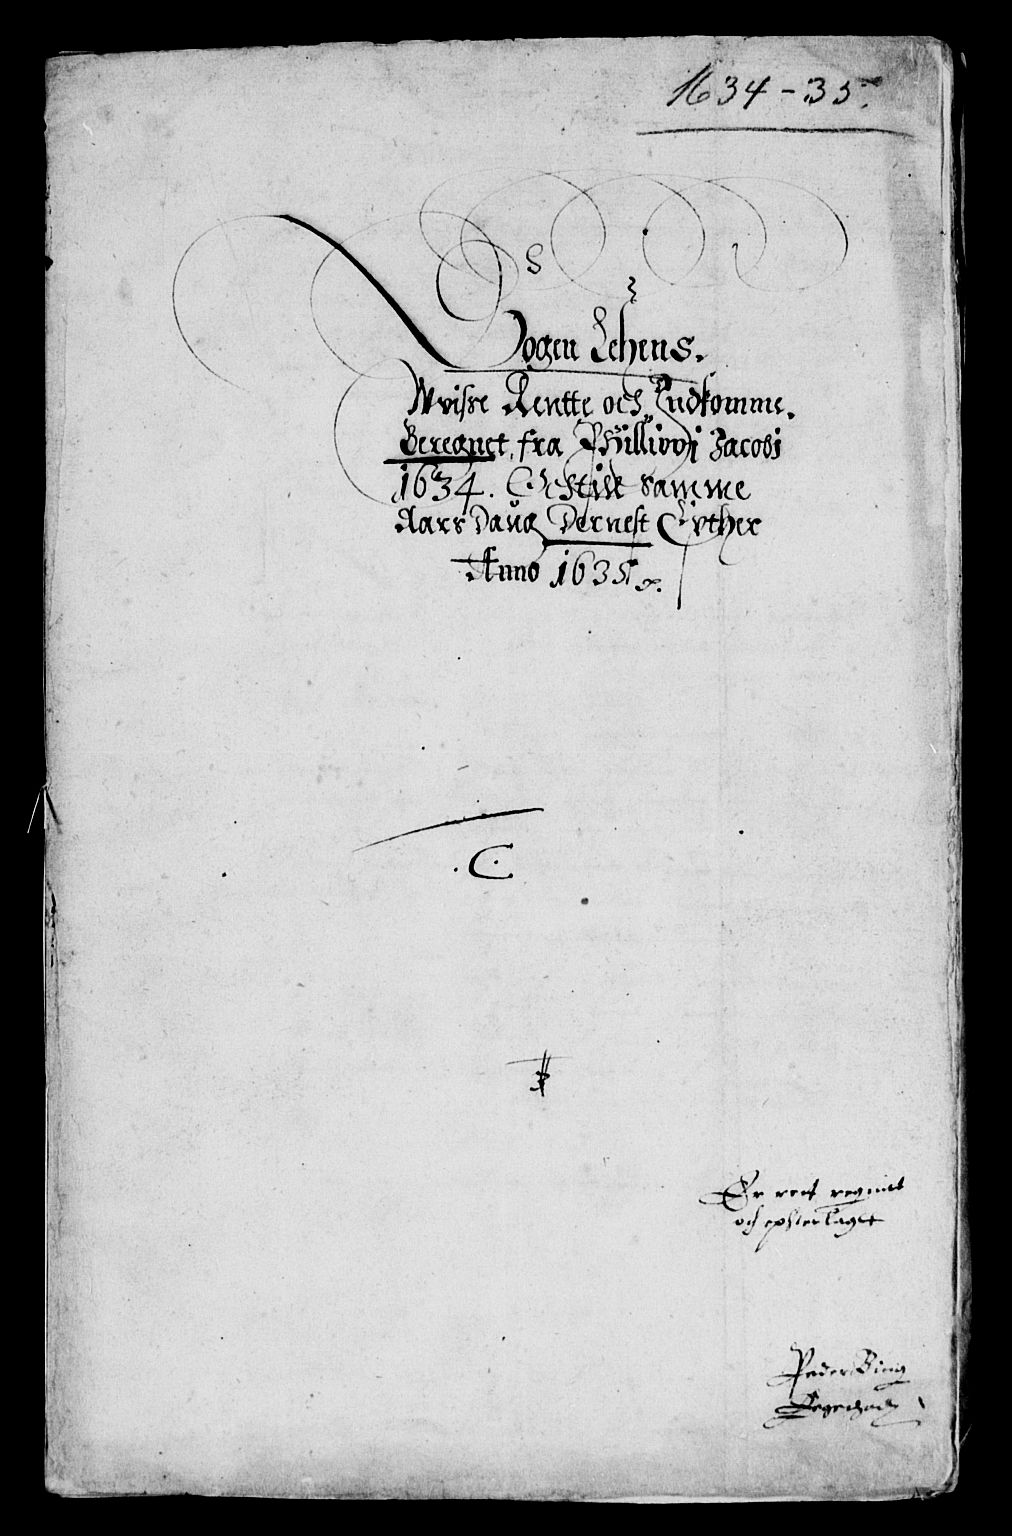 1634-35.
Lehens.
Wvisse Rentte och Indkomme.
Beregnet fra Phillippi Jacobi
1634. Och til samme
Aars Daug Dernest Epther
Anno 1635
C
Er rect regnit
och epsterlaget
Peder Bing